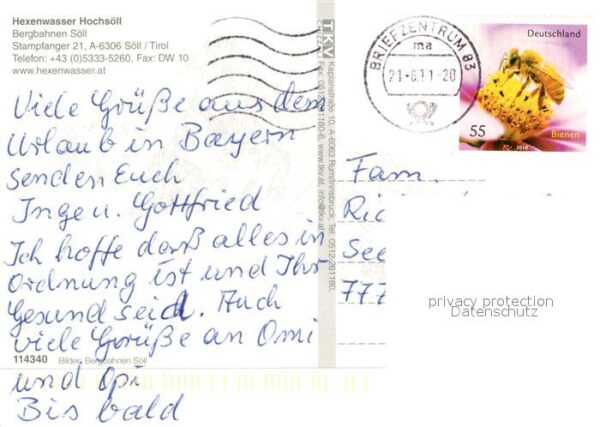 Hexenwasser Hochsöll
Bergbahnen Söll
Stampfanger 21, A-6306 Söll / Tirol
Telefon: +43 (0)5333-5260, Fax: DW 10
www.hexenwasser.at
Viele Grüße aus dem
Urlaub in Bayern
senden Euch
Inge u. Gottfried
Ich hoffe daß alles in
Ordnung ist und Ihr
Gesund seid. Auch
viele Grüße an Omi
und Opi
Bis bald
114340 Bilder: Bergbahnen Söll
TKV
Kaplanstraße 10, A-6063 Rum/Innsbruck, Tel. 0512-261180,
Fax: 0512-261180-6, www.tkv.at, info@tkv.at
BRIEFZENTRUM 83
ma
21.-6.11.-20
Deutschland
55 Bienen
2010
Fam.
Ric
See
777
privacy protection
Datenschutz